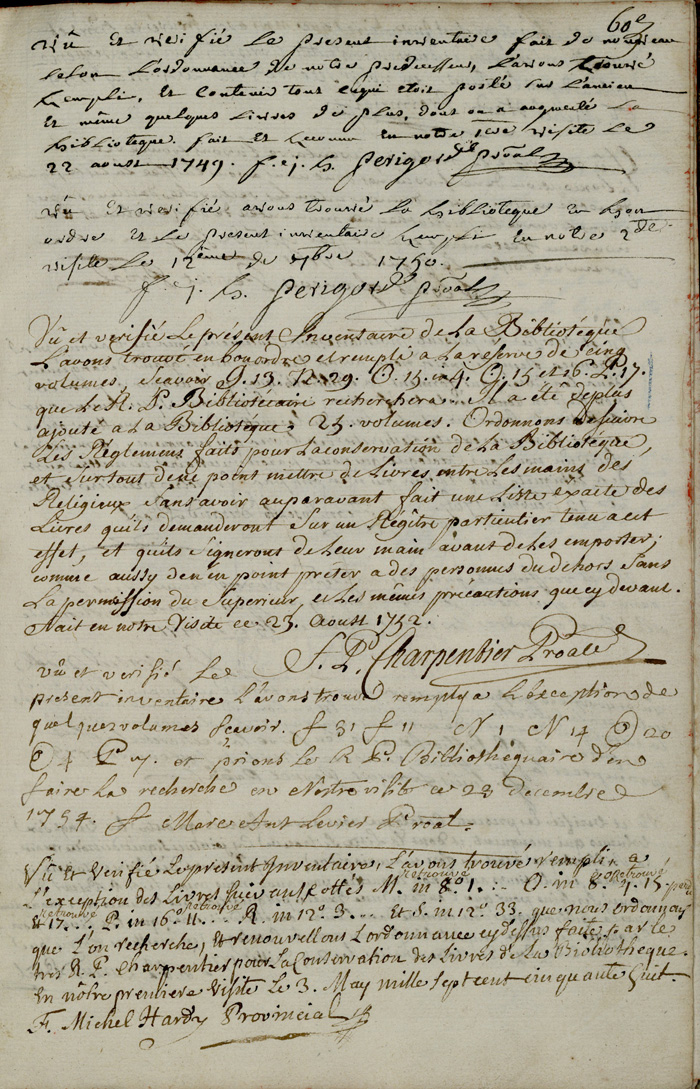 60e
Vû Et verifié Le present inventaire fait de nouveau
selon L'ordonnance de notre predecesseur, L'avons trouvé
Rempli, Et contenir tout ce qui etoit porté sur L'ancien
Et même quelques Livres de plus, dont on a augmenté La
Biblioteque. fait Et Reconnu En notre 1ere visite Le
22 aoust 1749. f. j. h. Perigord Proāl
Vû Et verifié avons trouvé La Biblioteque En bon
ordre Et Le present inventaire Rempli En notre 2de
visite Le 12eme de 7bre 1750.
f. j. h. Perigord Proāl
Vû et verifié Le present Inventaire de La Bibliotéque
L'avons trouvé en bon ordre et rempli a La réserve de cinq
volumes, Scavoir G. 13. N. 29. O. 15. in 4. O. 15 et 16. P. 17.
que Le R. P. Bibliotécaire recherchera. Il a été de plus
ajouté a La Bibliotéque, 25. volumes. Ordonnons de suivre
des Réglemens faits pour La conservation de La Bibliotéque,
et Surtout de ne point mettre de Livres entre Les mains des
Religieux Sans avoir auparavant fait une Liste exacte des
Livres qu'ils demanderont Sur un Régître particulier tenu a cet
effet, et qu'ils Signerons de Leur main avant de Les emporter;
comme aussy d'en point prêter a des personnes du dehors Sans
La permission du Superieur, et Les mêmes précautions que cy devant.
Fait en notre Visite ce 23. Aoust 1752.
F. P. Charpentier Proāl
vû et verifié Le
present inventaire L'avons trouvé remply a L'exception de
quelques volumes Scavoir. f 31 f 11 N 1 N 14 O 20
O 4 P 7. et prions Le R P. Bibliothequaire d'en
faire La recherche en Nostre visite ce 23 decembre
1754. f Marc Ant Levier Proāl.
Vû Et Verifié Le présent Inventaire, L'avons trouvé rempli a
L'exception des Livres suivans cottés M. in 8o. 1. retrouvé O. in 8o. 9. 15. retrouvé
Et 17. retrouvé P. in 16o. 11. retrouvé R. in 12o. 3... Et S. in 12o. 33. que nous ordonnons
que L'on recherche, Et renouvellons L'ordonnance cy dessus faite par le
tres R. P. Charpentier pour La Conservation des Livres de La Bibliothèque.
En nôtre premiere Visite Le 3. May mille sept cent cinquante huit.
F. Michel Hardy Provincial